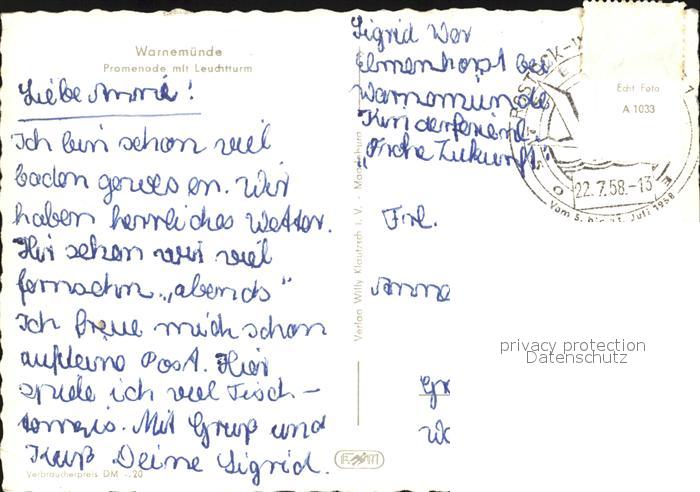 Warnemünde
Promenade mit Leuchtturm
Liebe Anni!
Ich bin schon viel
baden gewesen. Wir
haben herrliches Wetter.
Hir sehen wir viel
fernsehn „abends"
Ich freue mich schon
auf deine Post. Hier
spiele ich viel Tisch-
tennis. Mit Gruß und
Kuß Deine Sigrid.
Verbraucherpreis DM -.20
Verlag Willy Klautzsch i. V. - Magdeburg
Sigrid
Elmenhorst bei
Warnemünde
Kinderferienl.
„Frohe Zukunft"
Frl.
Echt Foto
A 1033
ROSTOCK
22.7.58.-13
Vom 5. bis Juli 1958
privacy protection
Datenschutz